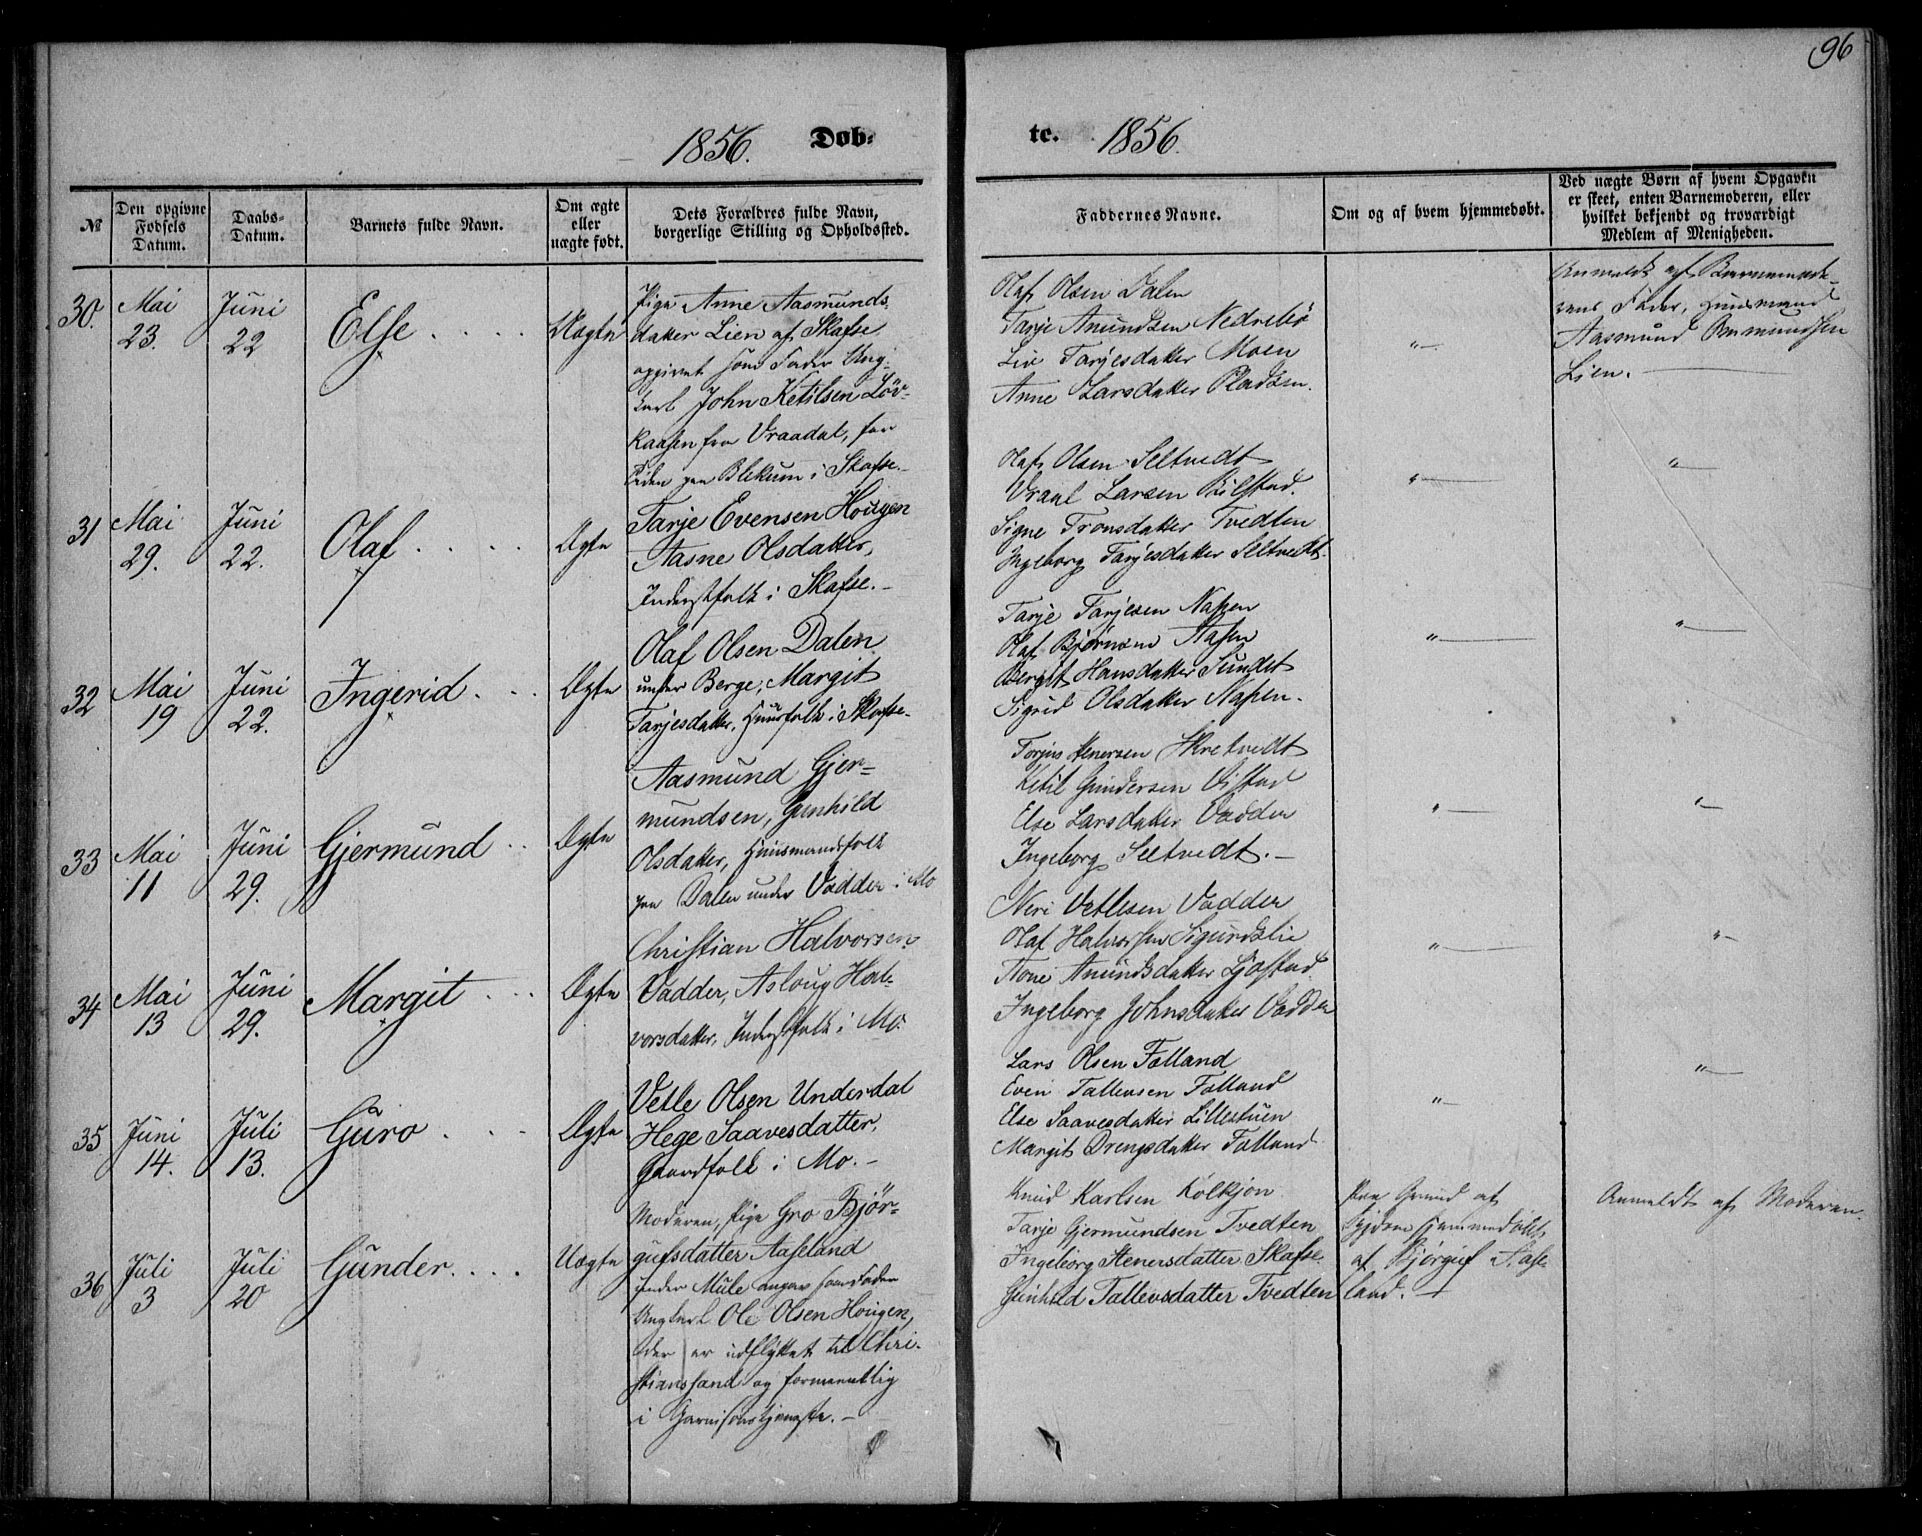 96
1856. Døb-
te. 1856.
№
Den opgivne
Fødsels
Datum.
Daabs-
Datum.
Barnets fulde Navn.
Om ægte
eller
uægte født.
Dets Forældres fulde Navn,
borgerlige Stilling og Opholdssted.
Faddernes Navne.
Om og af hvem hjemmedøbt.
Ved uægte Børn af hvem Opgaven
er skeet, enten Barnemoderen, eller
hvilket bekjendt og troværdigt
Medlem af Menigheden.
30.
Mai
23.
Juni
22
Else
Uægte
Pige Anne Aasmunds-
datter Lien af Skafse
opgivet som Fader Ung-
karl John Ketilsen Løv-
raasen fra Vraadal, for
Tiden paa Blekum i Skafse.
Olaf Olsen Dalen
Tarje Anundsen Nedrebø
Liv Tarjesdatter Moen
Anne Larsdatter Pladsen.
"
Anmeldt af Barnemode-
rens Fader, Huusmand
Aasmund
Lien.
31
Mai
29.
Juni
22.
Olaf
Ægte
Tarje Evensen Hougen
Aasne Olsdatter,
Inderstfolk i Skafse.
Olaf Olsen Seltvedt
Vraal Larsen
Signe Tronsdatter Tvedten
Ingeborg Tarjesdatter Seltvedt
"
"
32
Mai
19
Juni
22.
Ingerid
Ægte
Olaf Olsen Dalen
under Berge, Margit
Tarjesdatter, Huusfolk i Skafse.
Tarje Tarjesen Næsen
Olaf Bjørnsen Næsen
Bergit Hansdatter Sundet
Sigrid Olsdatter Næsen.
"
"
33
Mai
11
Juni
29.
Gjermund
Ægte
Aasmund Gjer-
mundsen, Gunhild
Olsdatter, Huusmandsfolk
paa Dalen under Vadder i Mo
Torjus Stenersen Skretvedt
Ketil Gundersen Øistad
Else Larsdatter Vadder
Ingeborg Seltvedt.
"
"
34
Mai
13
Juni
29.
Margit
Ægte
Christian Halvorsen
Vadder, Asloug Hal-
vorsdatter, Inderstfolk i Mo.
Neri Vetlesen Vadder
Olaf Halvorsen Sigurdslie
Tone Anundsdatter Ljøstad
Ingeborg Johnsdatter Vadder
"
"
35
Juni
14.
Juli
13.
Guro
Ægte
Vetle Olsen Underdal
Hege Saavesdatter,
Gaardfolk i Mo.
Lars Olsen Følland
Even Tallevsen Følland
Else Saavesdatter Lillestuen
Margit Drengsdatter Følland
"
"
36
Juli
3
Juli
20
Gunder
Uægte
Moderen, Pige Gro Bjør-
gufsdatter Aaseland
under Mule angav som Fader
Ungkarl Ole Olsen Hougen,
der er udflyttet til Chri-
stianssand og formeentlig
i Garnisonstjeneste.
Knud Karlsen Kolkjøn
Tarje Gjermundsen Tvedten
Ingeborg Stenersdatter Skafse
Gunhild Tallevsdatter Tvedten
Paa Grund af
Hjemmedøbt
af Bjørguf Aase-
land.
Anmeldt af Moderen.